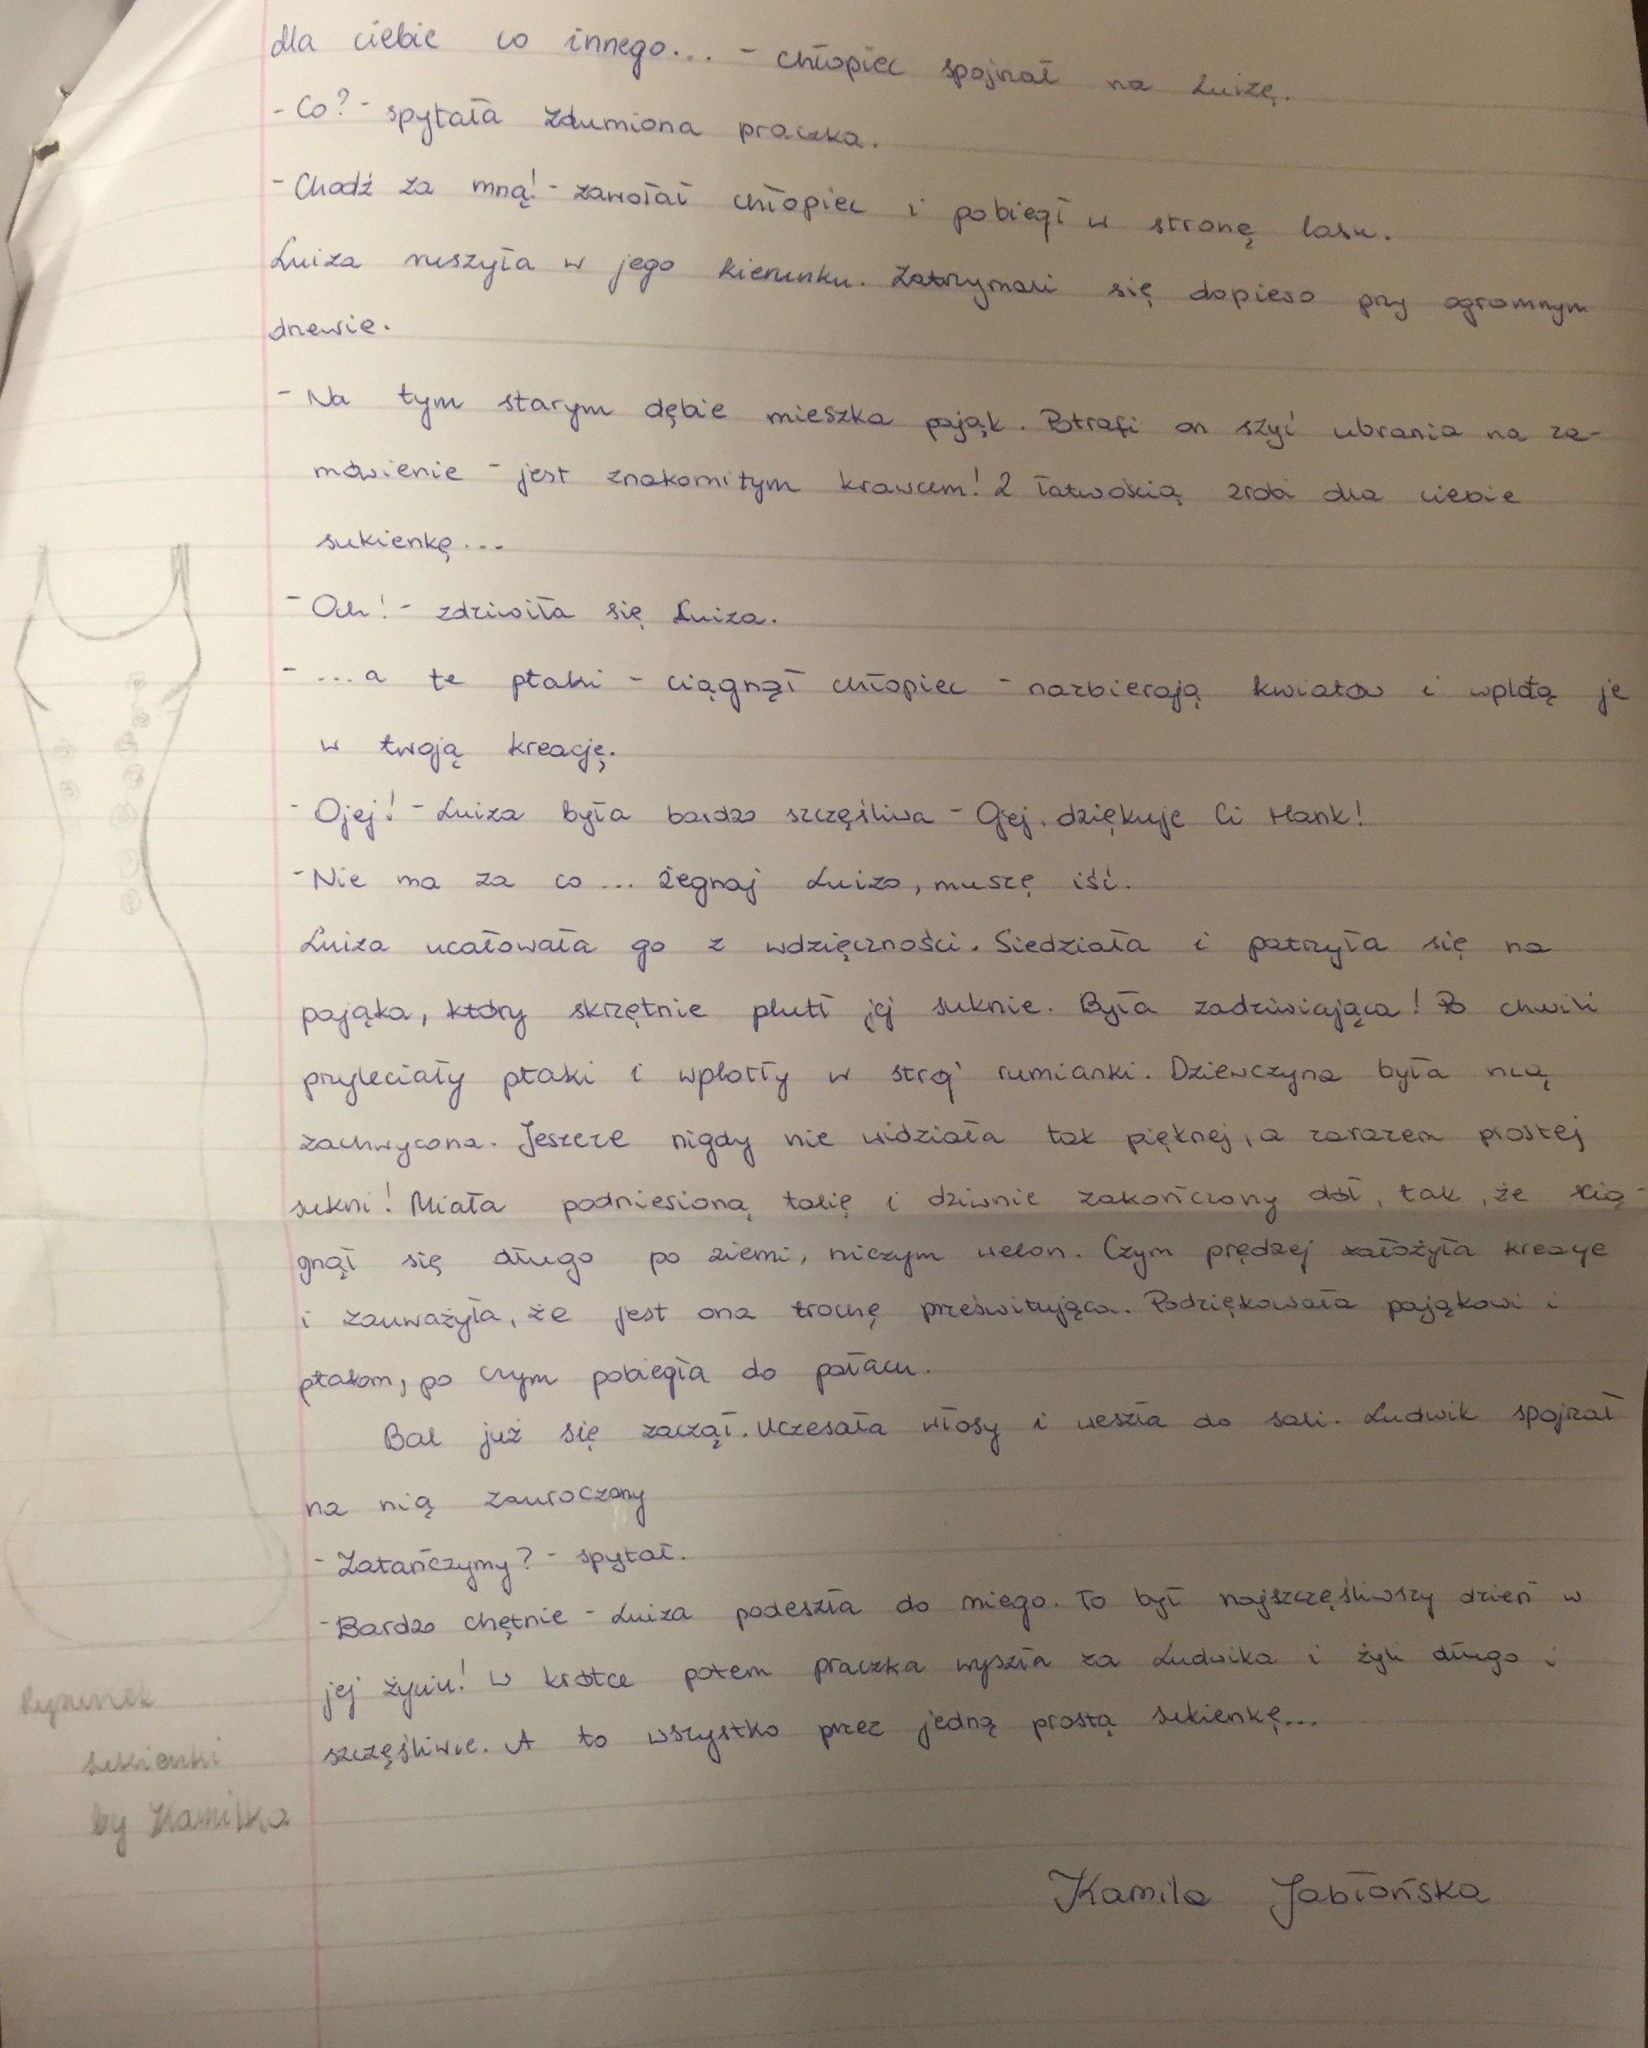 dla ciebie co innego... - chłopiec spojrzał na Luizę.
- Co? - spytała zdumiona praczka.
- Chodź za mną! - zawołał chłopiec i pobiegł w stronę lasu.
Luiza ruszyła w jego kierunku. Zatrzymali się dopiero przy ogromnym
drzewie.
- Na tym starym dębie mieszka pająk. Potrafi on szyć ubrania na za-
mówienie - jest znakomitym krawcem! Z łatwością zrobi dla ciebie
sukienkę...
- Och! - zdziwiła się Luiza.
- ...a te ptaki - ciągnął chłopiec - nazbierają kwiatów i wplotą je
w twoją kreację.
- Ojej! - Luiza była bardzo szczęśliwa - Ojej, dziękuje Ci Hank!
- Nie ma za co... Żegnaj Luizo, muszę iść.
Luiza ucałowała go z wdzięczności. Siedziała i patrzyła się na
pająka, który skrzętnie plutł jej suknie. Była zadziwiająca! Po chwili
przyleciały ptaki i wplotły w strój rumianki. Dziewczyna była nią
zachwycona. Jeszcze nigdy nie widziała tak pięknej, a zarazem prostej
sukni! Miała podniesioną talię i dziwnie zakończony dół, tak, że cią-
gnął się długo po ziemi, niczym welon. Czym prędzej założyła kreacje
i zauważyła, że jest ona trochę prześwitująca. Podziękowała pająkowi i
ptakom, po czym pobiegła do pałacu.
Bal już się zaczął. Uczesała włosy i weszła do sali. Ludwik spojrzał
na nią zauroczony
- Zatańczymy? - spytał.
- Bardzo chętnie - Luiza podeszła do niego. To był najszczęśliwszy dzień w
jej życiu! W krótce potem praczka wyszła za Ludwika i żyli długo i
szczęśliwie. A to wszystko przez jedną prostą sukienkę...
Rysunek
sukienki
by Kamilka
Kamila Jabłońska